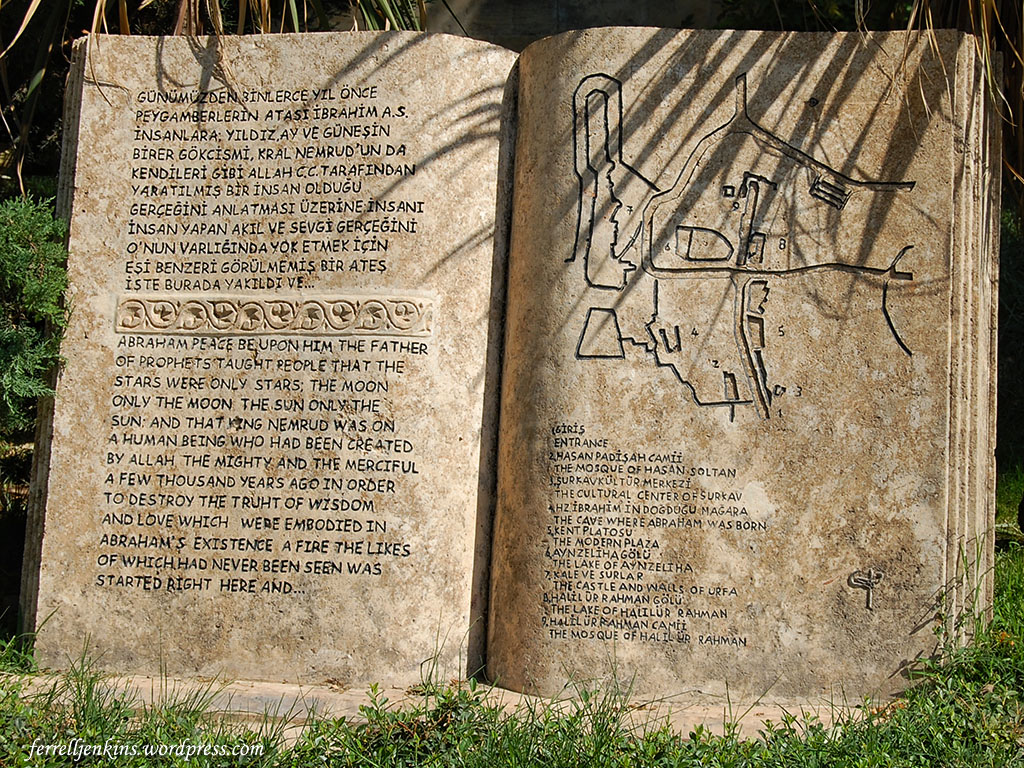 GÜNÜMÜZDEN BİNLERCE YIL ÖNCE
PEYGAMBERLERİN ATASI İBRAHİM A.S.
İNSANLARA; YILDIZ, AY VE GÜNEŞİN
BİRER GÖKCİSMİ, KRAL NEMRUD'UN DA
KENDİLERİ GİBİ ALLAH C.C. TARAFINDAN
YARATILMIŞ BİR İNSAN OLDUĞU
GERÇEĞİNİ ANLATMASI ÜZERİNE İNSANI
İNSAN YAPAN AKIL VE SEVGİ GERÇEĞİNİ
O'NUN VARLIĞINDA YOK ETMEK İÇİN
EŞİ BENZERİ GÖRÜLMEMİŞ BİR ATEŞ
İŞTE BURADA YAKILDI VE...
ABRAHAM PEACE BE UPON HIM THE FATHER
OF PROPHETS TAUGHT PEOPLE THAT THE
STARS WERE ONLY STARS; THE MOON
ONLY THE MOON THE SUN ONLY THE
SUN: AND THAT KING NEMRUD WAS ON
A HUMAN BEING WHO HAD BEEN CREATED
BY ALLAH THE MIGHTY AND THE MERCIFUL
A FEW THOUSAND YEARS AGO IN ORDER
TO DESTROY THE TRUHT OF WISDOM
AND LOVE WHICH WERE EMBODIED IN
ABRAHAM'S EXISTENCE A FIRE THE LIKES
OF WHICH HAD NEVER BEEN SEEN WAS
STARTED RIGHT HERE AND...
9
7
6
8
4
5
2
3
1
1 GİRİŞ
ENTRANCE
2.HASAN PADİŞAH CAMİİ
THE MOSQUE OF HASAN SOLTAN
3.ŞURKAV KÜLTÜR MERKEZİ
THE CULTURAL CENTER OF ŞURKAV
4.HZ İBRAHİM İN DOĞDUĞU MAĞARA
THE CAVE WHERE ABRAHAM WAS BORN
5.KENT PLATOSU
THE MODERN PLAZA
6.AYNZELİHA GÖLÜ
THE LAKE OF AYNZELİHA
7.KALE VE SURLAR
THE CASTLE AND WALLS OF URFA
8.HALİLÜR RAHMAN GÖLÜ
THE LAKE OF HALİLÜR RAHMAN
9.HALİLÜR RAHMAN CAMİİ
THE MOSQUE OF HALİLÜR RAHMAN
ferrelljenkins.wordpress.com